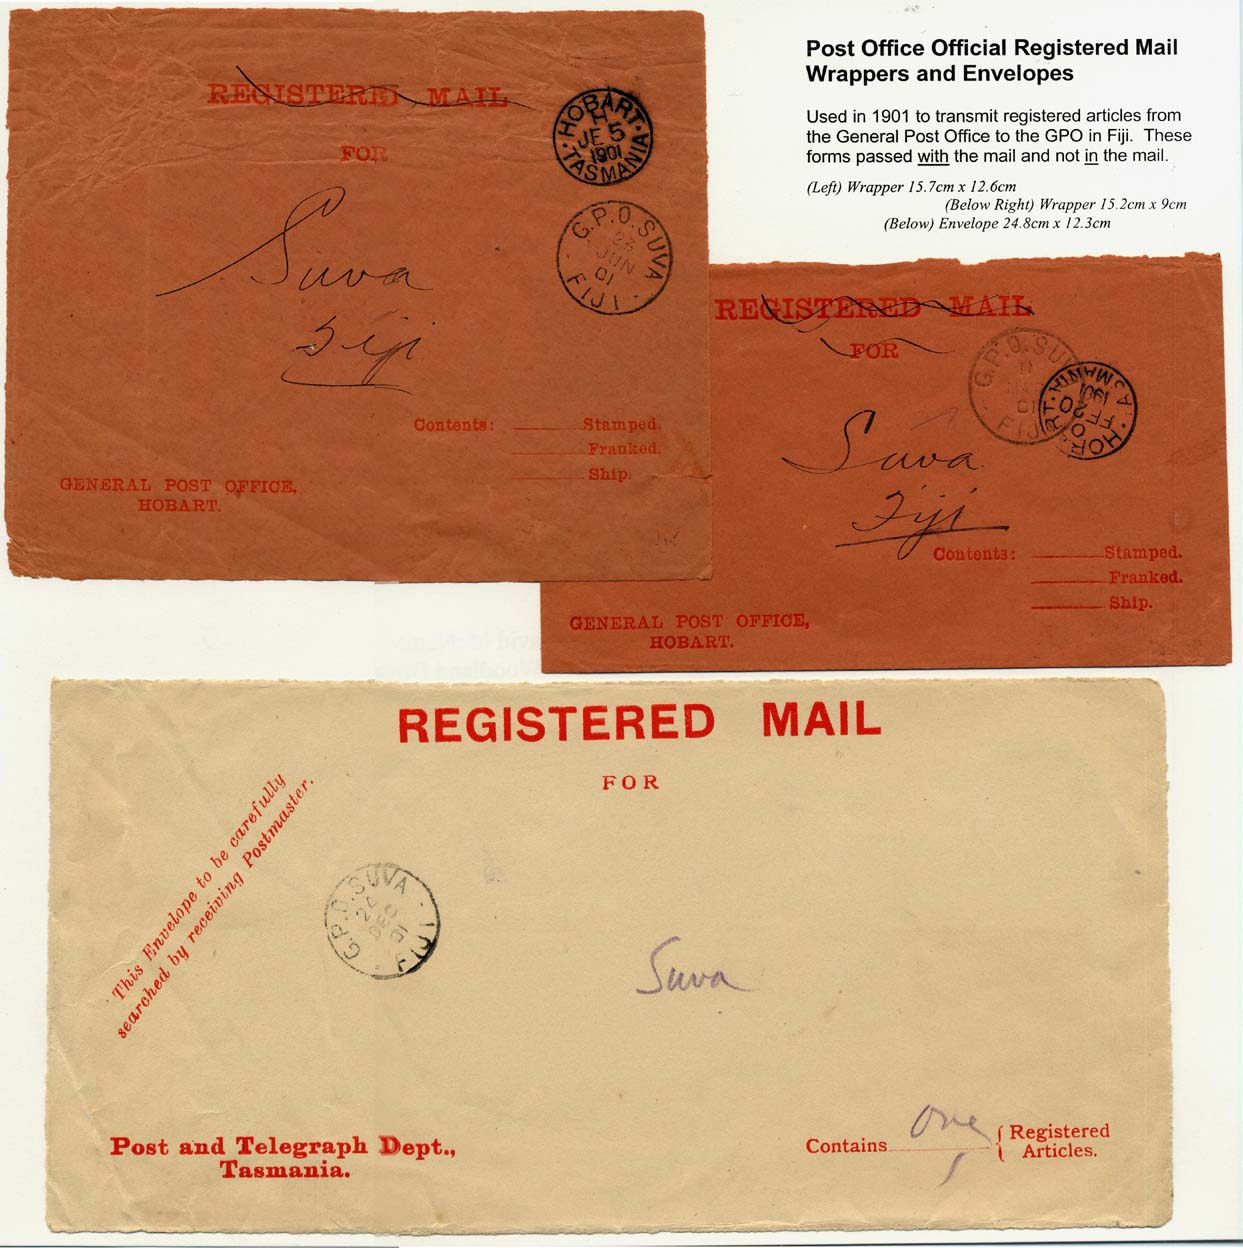 Post Office Official Registered Mail
Wrappers and Envelopes
Used in 1901 to transmit registered articles from
the General Post Office to the GPO in Fiji. These
forms passed with the mail and not in the mail.
(Left) Wrapper 15.7cm x 12.6cm
(Below Right) Wrapper 15.2cm x 9cm
(Below) Envelope 24.8cm x 12.3cm
REGISTERED MAIL
FOR
Suva
Fiji
HOBART
H
JE 5
1901
TASMANIA
G.P.O. SUVA
23
JUN
01
FIJI
Contents: Stamped.
Franked.
Ship.
GENERAL POST OFFICE,
HOBART.
REGISTERED MAIL
FOR
G.P.O. SUV
11
01
FIJI
HOBART
FE 20
1901
TASMANIA
Suva
Fiji
Contents: Stamped.
Franked.
Ship.
GENERAL POST OFFICE,
HOBART.
REGISTERED MAIL
FOR
This Envelope to be carefully
searched by receiving Postmaster.
G.P.O. SUVA
DEC
01
FIJI
Suva
Post and Telegraph Dept.,
Tasmania.
Contains One Registered
Articles.